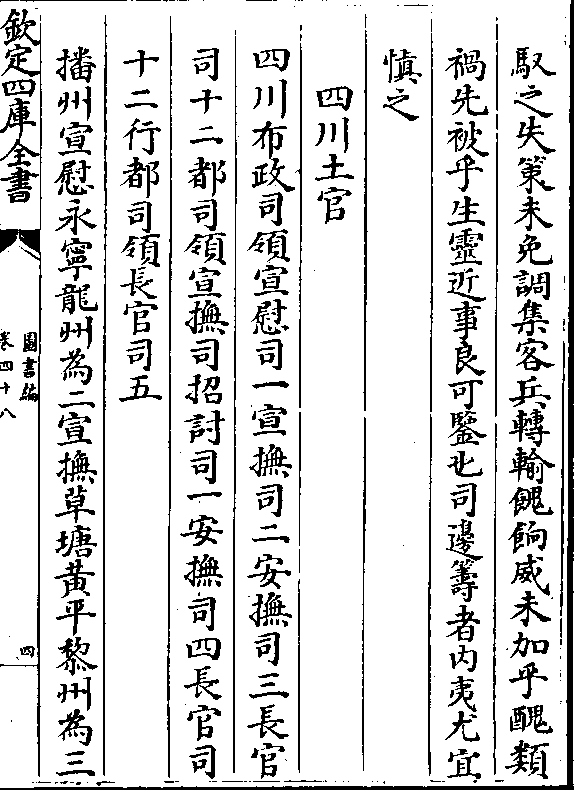 馭之失策未免調集客兵轉輸餽餉威未加乎醜類
禍先被乎生靈近事良可鑒也司邊籌者内夷尤宜
慎之
四川土官
四川布政司領宣慰司一宣撫司二安撫司三長官
司十二都司領宣撫司招討司一安撫司四長官司
十二行都司領長官司五
播州宣慰永寧龍州為二宣撫草塘黄平黎州為三
欽定四庫全書
圖書編
卷四十八
四